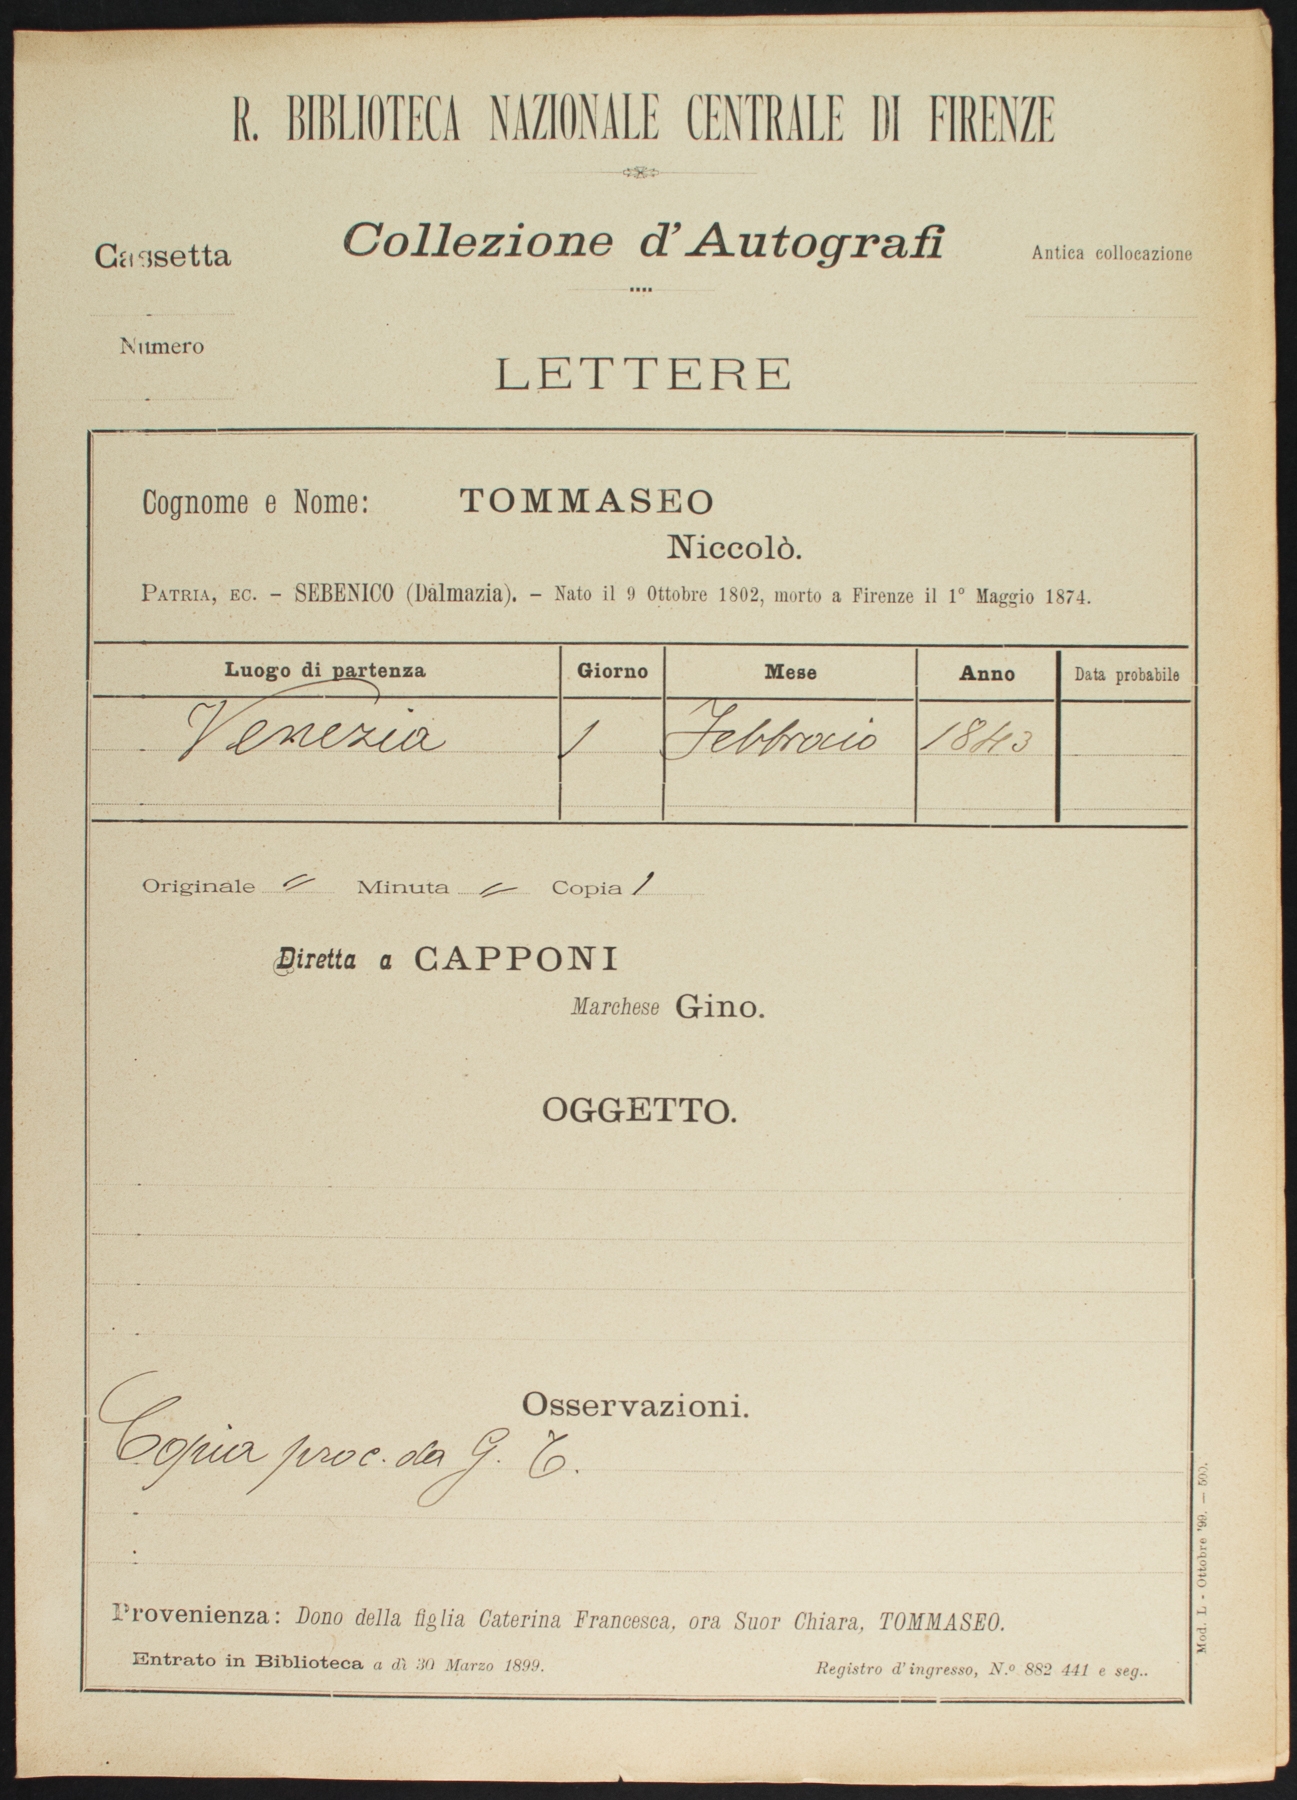 R. BIBLIOTECA NAZIONALE CENTRALE DI FIRENZE
Collezione d'Autografi
Cassetta
Antica collocazione
Numero
LETTERE
Cognome e Nome: TOMMASEO
Niccolò.
PATRIA, EC. - SEBENICO (Dalmazia). - Nato il 9 Ottobre 1802, morto a Firenze il 1° Maggio 1874.
Luogo di partenza Giorno Mese Anno Data probabile
Venezia 1 Febbraio 1843
Originale = Minuta = Copia 1
Diretta a CAPPONI
Marchese Gino.
OGGETTO.
Osservazioni.
Copia proc. da G. C.
Provenienza: Dono della figlia Caterina Francesca, ora Suor Chiara, TOMMASEO.
Entrato in Biblioteca a dì 30 Marzo 1899. Registro d'ingresso, N.° 882 441 e seg..
Mod. L - Ottobre '99. — 500.